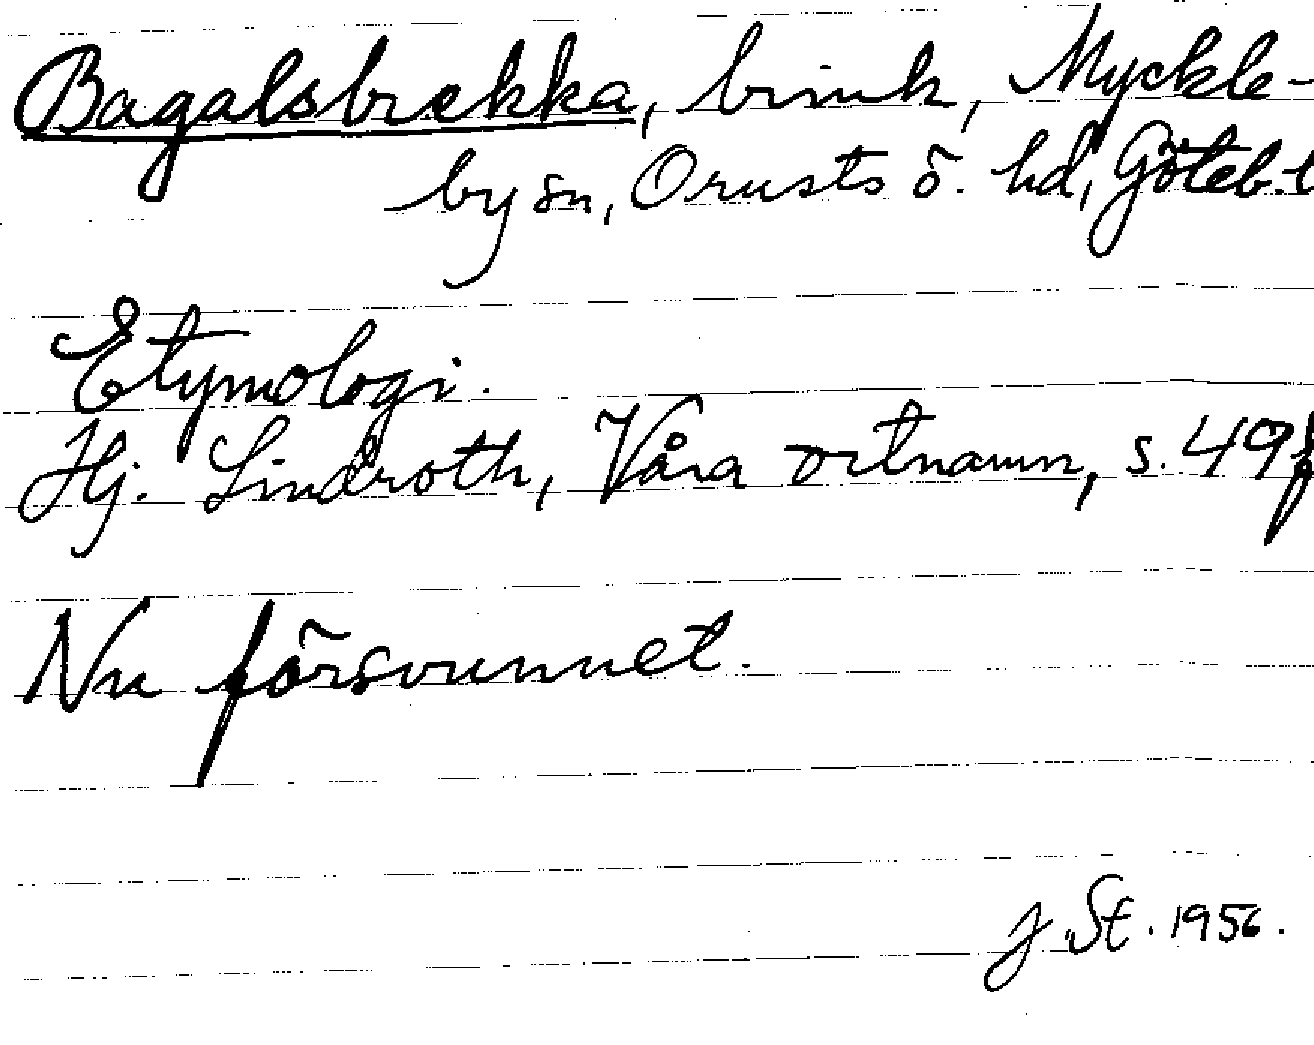 Bagalsbrekka, brink, Myckle-
by sn, Orusts ö. hd, Göteb.
Etymologi.
Hj. Lindroth, Våra ortnamn, s. 49f
Nu försvunnet.
J St. 1956.